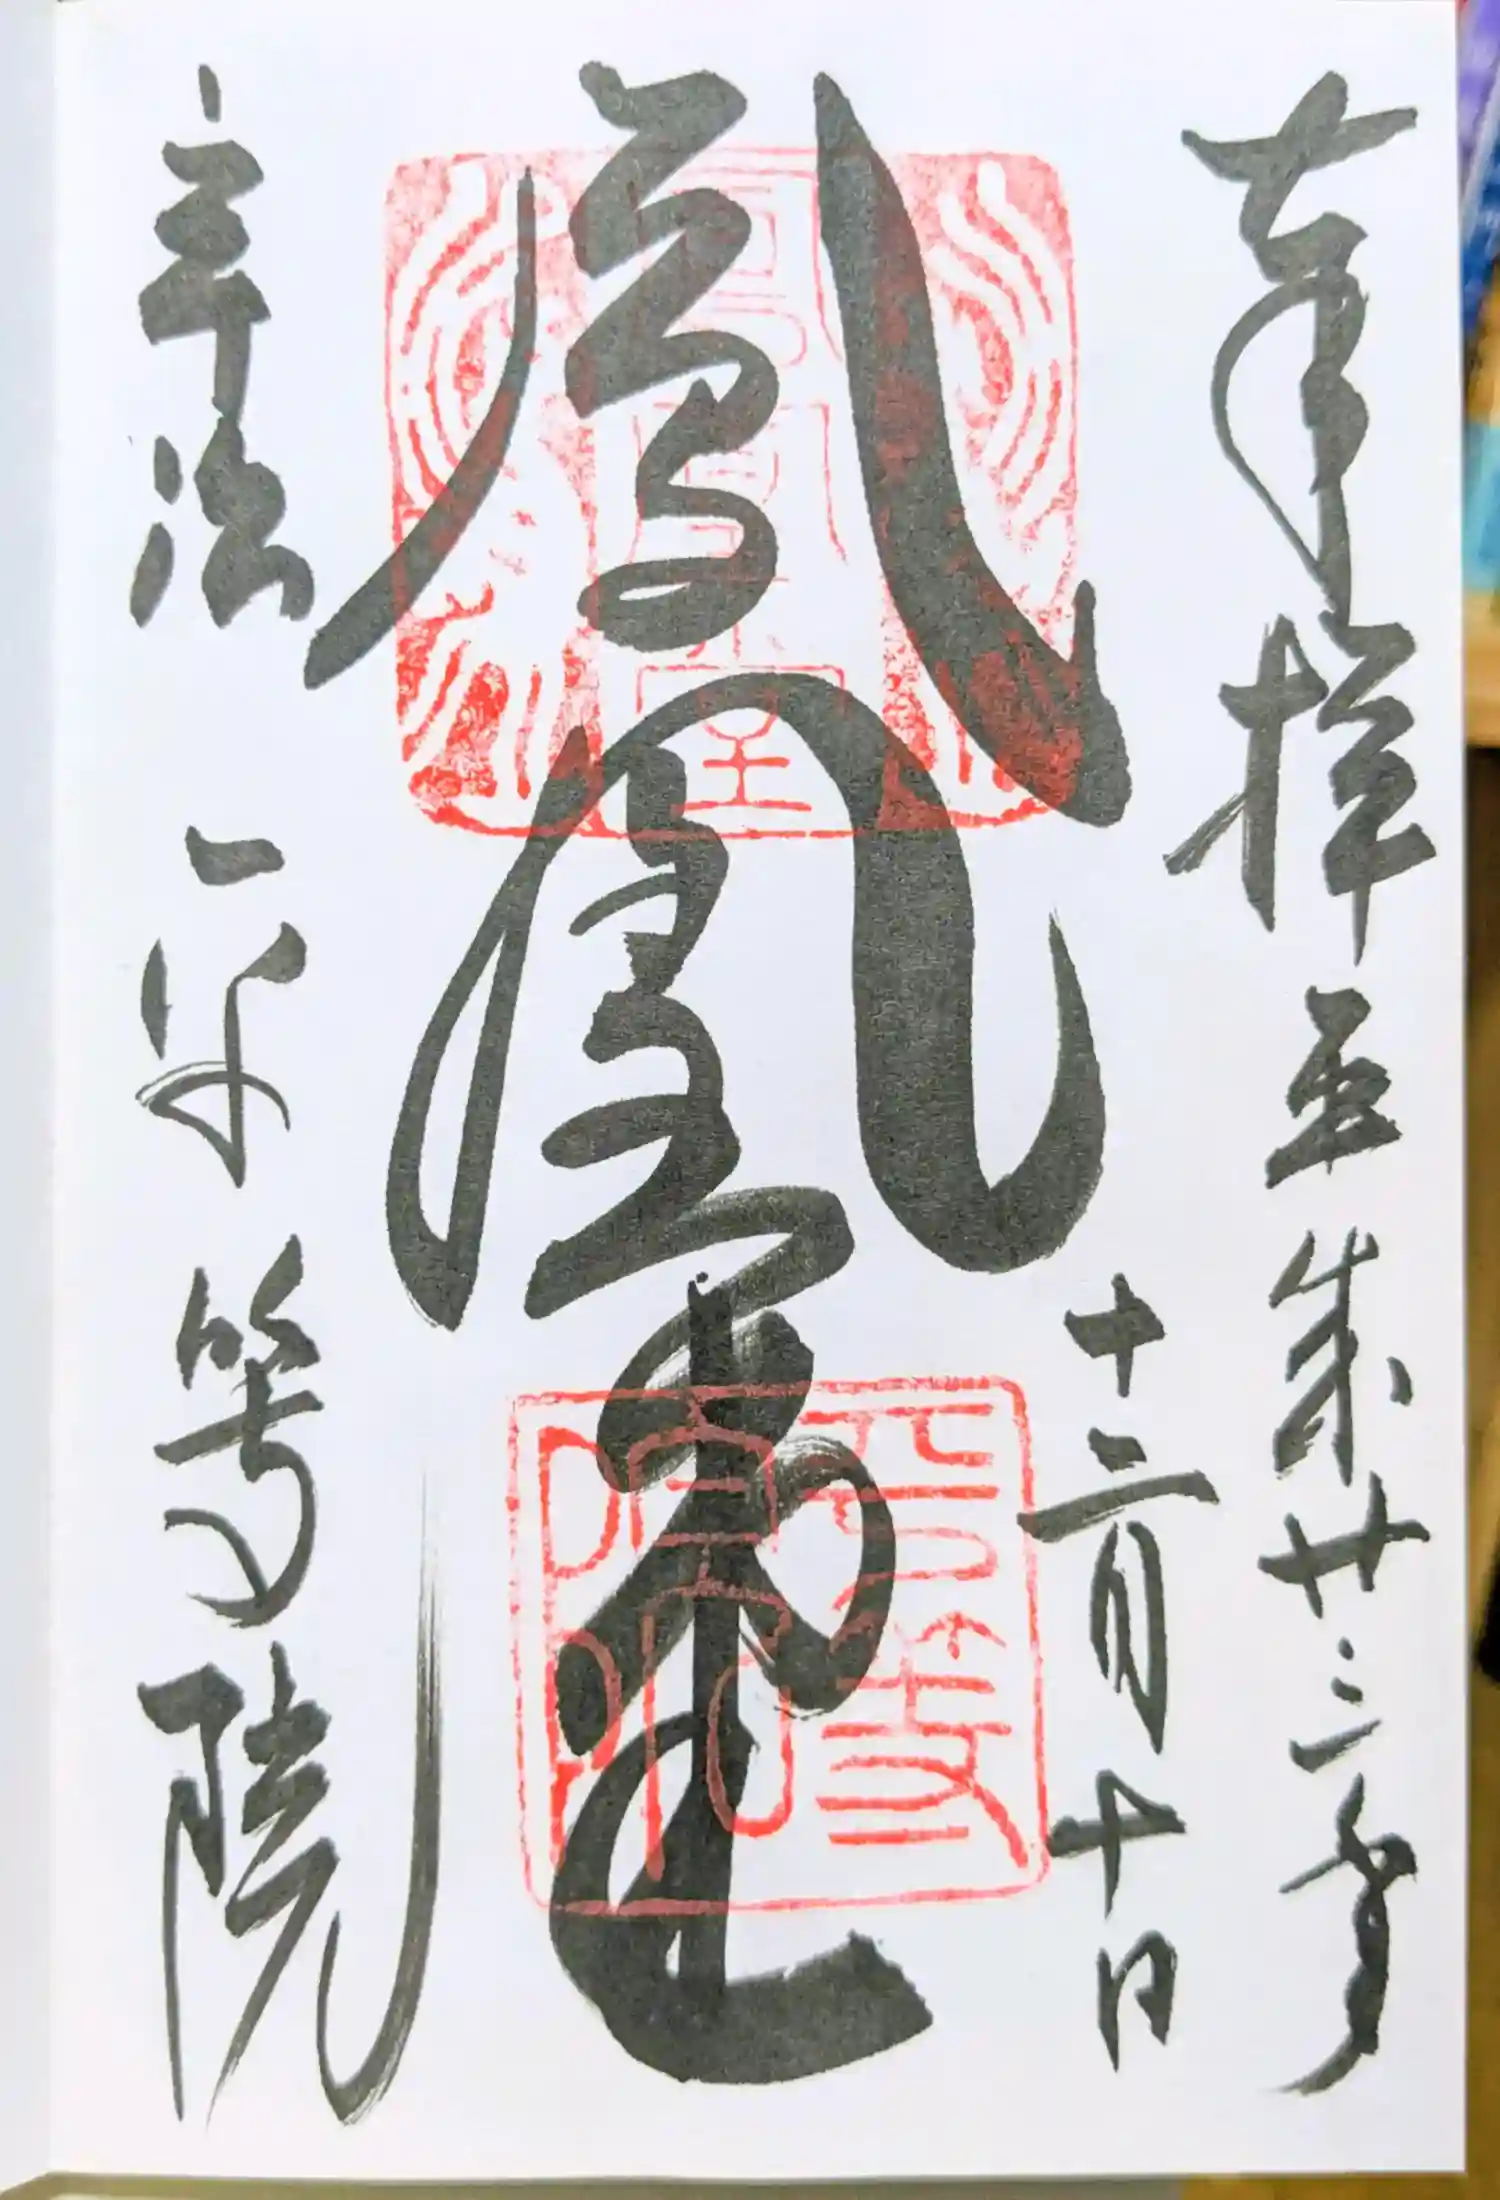 奉拝 平成廿三年
十二月十日
鳳凰堂
宇治 平等院
平等院印